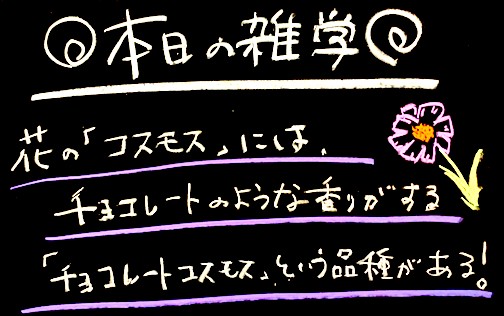 本日の雑学
花の「コスモス」には、
チョコレートのような香りがする
「チョコレートコスモス」という品種がある!